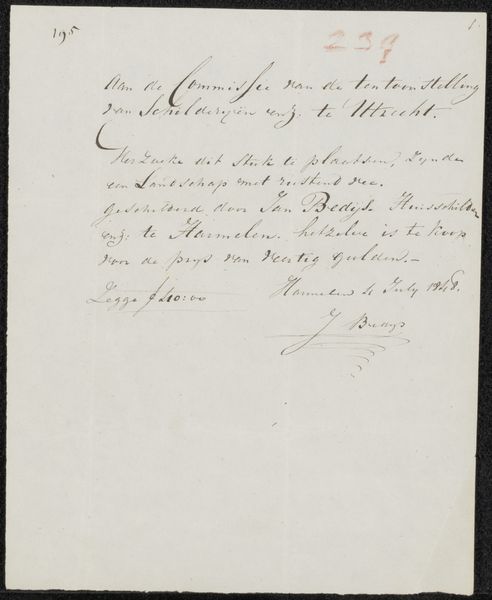 195
239
1.
Aan de Commissie van de tentoonstelling
van Schilderijen enz. te Utrecht.
Verzoeke dit stuk te plaatsen, zijnde
een Landschap met rustend vee.
geschilderd door Jan Bedijs. Huisschilder
enz: te Harmelen. hetzelve is te koop
voor de prijs van veertig gulden.-
Zegge ƒ 40:00
Harmelen 4 July 1848.
J Bedijs